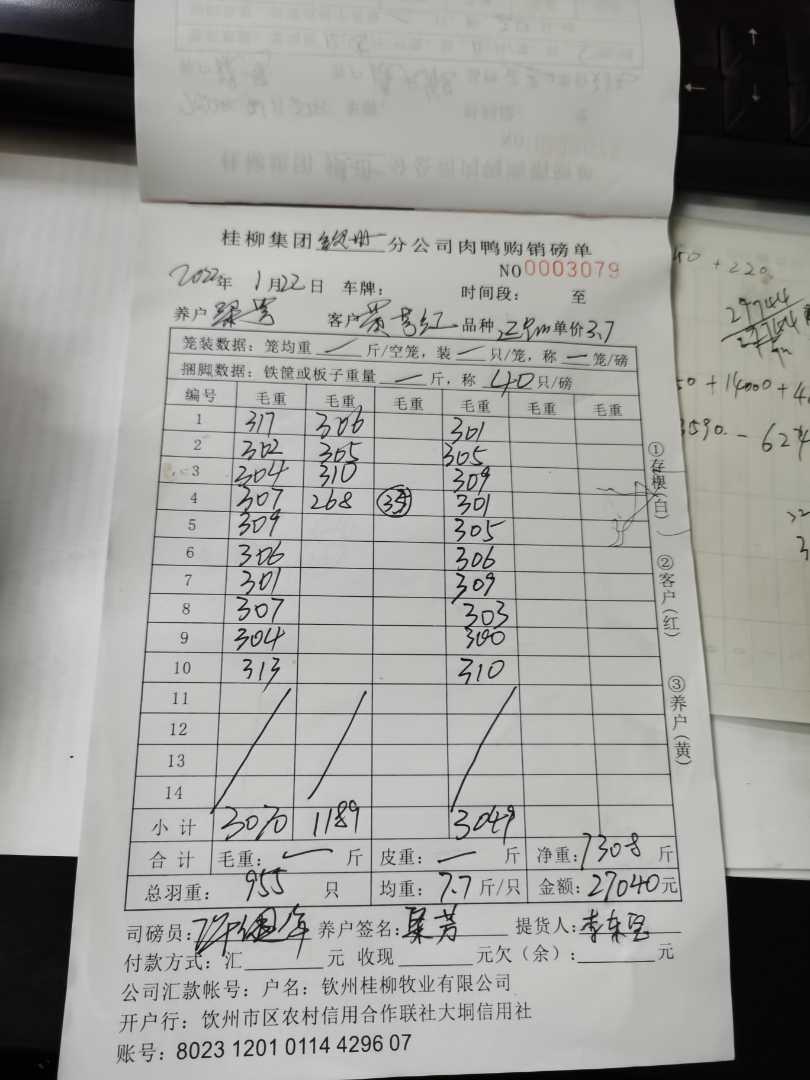 桂柳集团 分公司肉鸭购销磅单
NO0003079
2022年 1月22日 车牌： 时间段： 至
养户 梁芳 客户 黄芳红 品种 单价3.7
笼装数据：笼均重 / 斤/空笼，装 一 只/笼，称 一 笼/磅
捆脚数据：铁筐或板子重量 一 斤，称 40只/磅
编号 毛重 毛重 毛重 毛重 毛重 毛重
1 317 306 301
2 302 305 305
3 304 310 309
4 307 268 301
5 309 305
6 306 306
7 301 309
8 307 303
9 304 300
10 313 310
11
12
13
14
小计 3070 1189 3049
合计 毛重： 一 斤 皮重： 一 斤 净重：7308 斤
总羽重： 955 只 均重：7.7斤/只 金额：27040元
司磅员： 养户签名：梁芳 提货人：李东
付款方式：汇 元 收现 元欠（余）： 元
公司汇款帐号：户名：钦州桂柳牧业有限公司
开户行：饮州市区农村信用合作联社大垌信用社
账号：8023 1201 0114 4296 07
①存根(白)
②客户(红)
③养户(黄)
50 + 220
29744
50 + 14000 + 4
3590 - 627